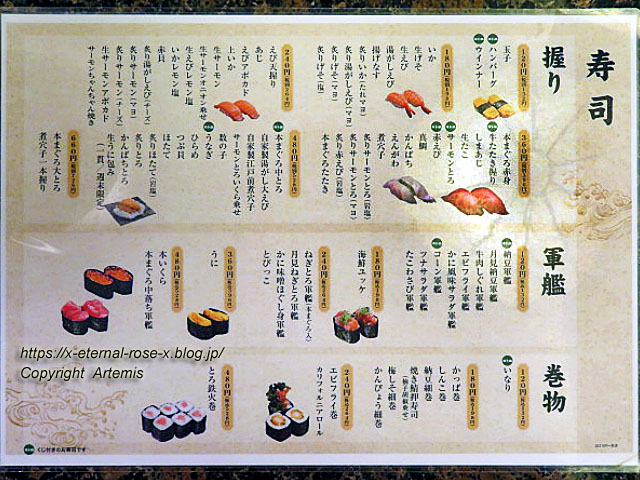 寿司
握り
120円
玉子
ハンバーグ
ウインナー
180円
いか
生げそ
生えび
湯がしえび
揚げなす
炙りいか(たれマヨ)
炙り湯がしえび(マヨ)
炙りげそ(マヨ)
炙りげそ(塩)
240円
えび天握り
あじ
えびアボカド
上いか
生サーモン
生サーモンオニオン乗せ
生えびレモン塩
いかレモン塩
赤貝
炙り湯がしえび(チーズ)
炙りサーモン(マヨ)
炙りサーモン(チーズ)
サーモンアボカド
サーモンちゃんちゃん焼き
360円
本まぐろ赤身
牛たたき握り
しまあじ
生たこ
サーモンとろ
赤えび
真鯛
かんぱち
えんがわ
煮穴子
炙りサーモンとろ(岩塩)
炙りサーモンとろ(マヨ)
炙り赤えび(岩塩)
本まぐろたたき
480円
本まぐろ中とろ
自家製湯がし大えび
自家製江戸前煮穴子
サーモンとろいくら乗せ
数の子
うなぎ
ひらめ
つぶ貝
ほたて
炙りほたて(岩塩)
炙りとろ
かんぱちとろ
生うに包み
(一貫・週末限定)
660円
本まぐろ大とろ
煮穴子一本握り
軍艦
120円
納豆軍艦
月見納豆軍艦
牛肉しぐれ軍艦
エビフライ軍艦
かに風味サラダ軍艦
コーン軍艦
ツナサラダ軍艦
たこわさび軍艦
180円
海鮮ユッケ
240円
ねぎとろ軍艦(本まぐろ入)
月見ねぎとろ軍艦
かに味噌ほぐし身軍艦
とびっこ
360円
うに
480円
本いくら
本まぐろ中落ち軍艦
巻物
120円
いなり
180円
かっぱ巻
しんこ巻
納豆細巻
焼き鯖押寿司
(柚子胡椒乗せ)
梅しそ細巻
かんぴょう細巻
240円
エビフライ巻
カリフォルニアロール
480円
とろ鉄火巻
くじ付きのお寿司です
https://x-eternal-rose-x.blog.jp/
Copyright Artemis